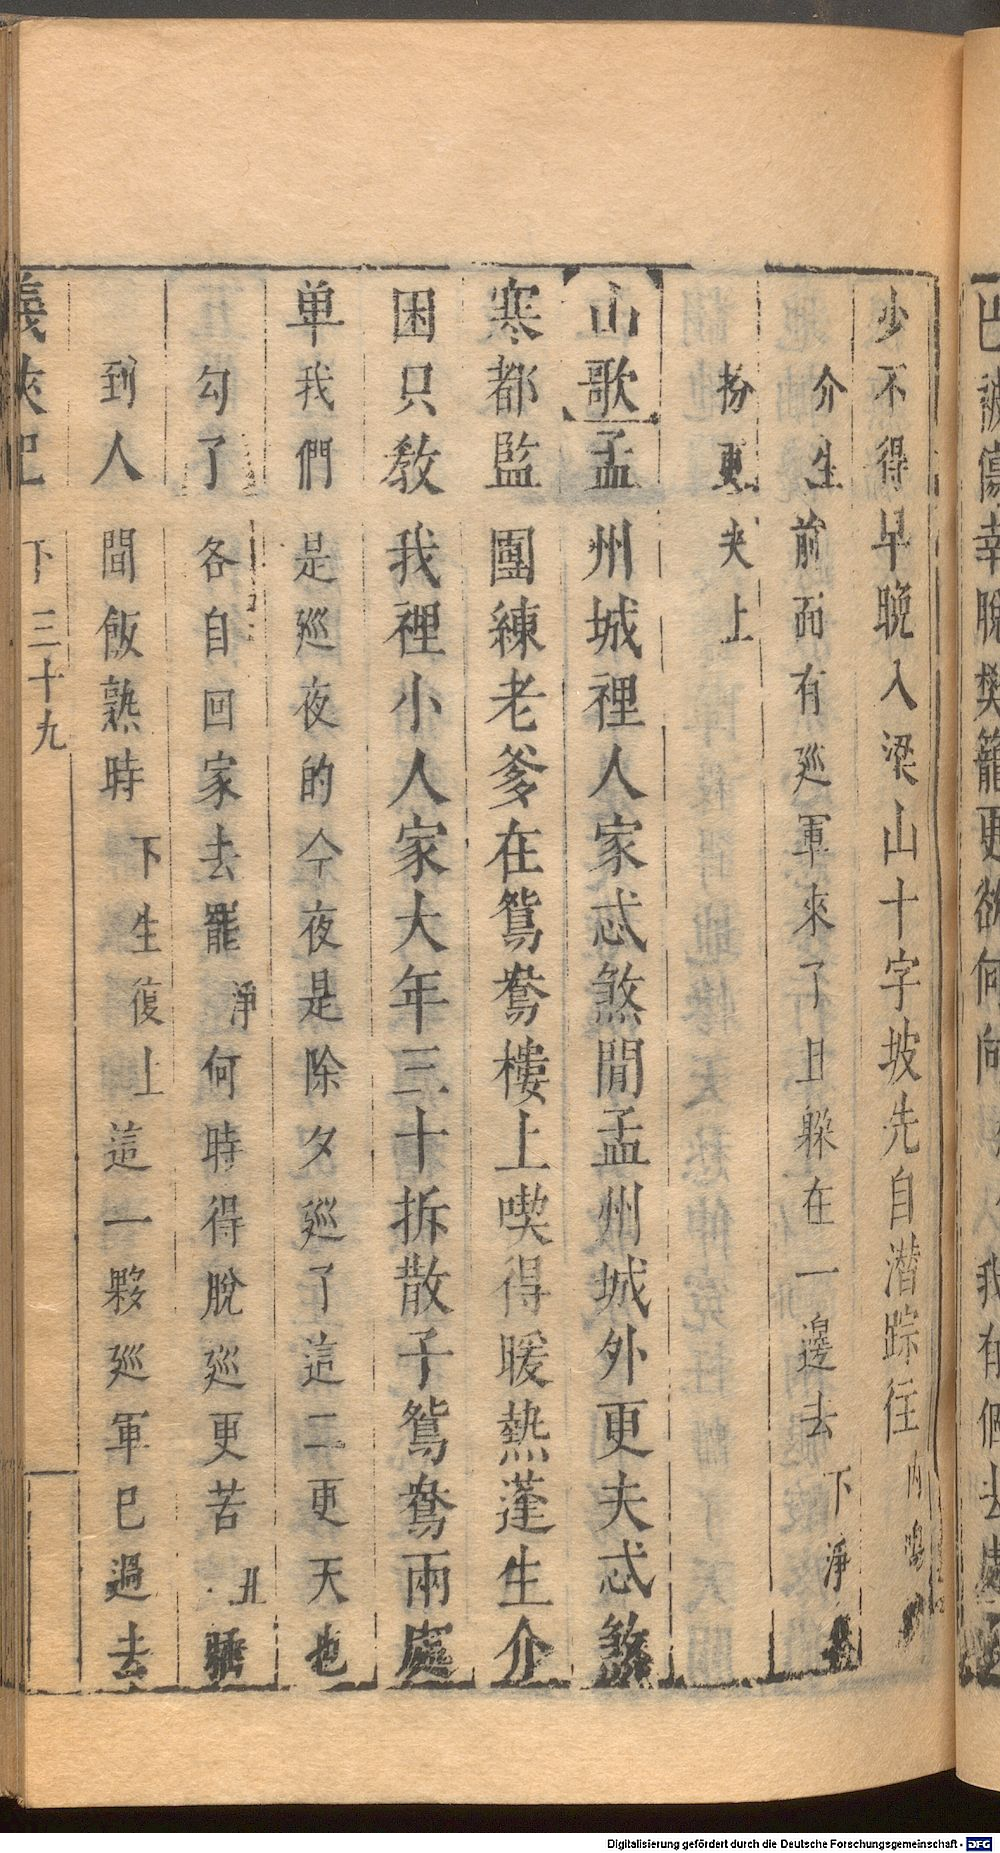 少不得早晚入梁山十字坡先自潛踪往內鳴
介生前面有廵軍來了且躲在一邊去下淨
扮更夫上
山歌孟州城裡人家忒煞閙孟州城外更夫忒煞
寒都監團練老爹在鴛鴦樓上喫得暖熱蓬生介
困只教我裡小人家大年三十拆散子鴛鴦兩處
单我們是廵夜的今夜是除夕廵了這二更天也
勾了各自回家去罷淨何時得脫廵更苦丑睡
到人間飯熟時下生復上這一夥廵軍已過去
義俠記 下 三十九
巴被傷幸脫樊籠更欲何向 我有個去處
Digitalisierung gefördert durch die Deutsche Forschungsgemeinschaft - DFG